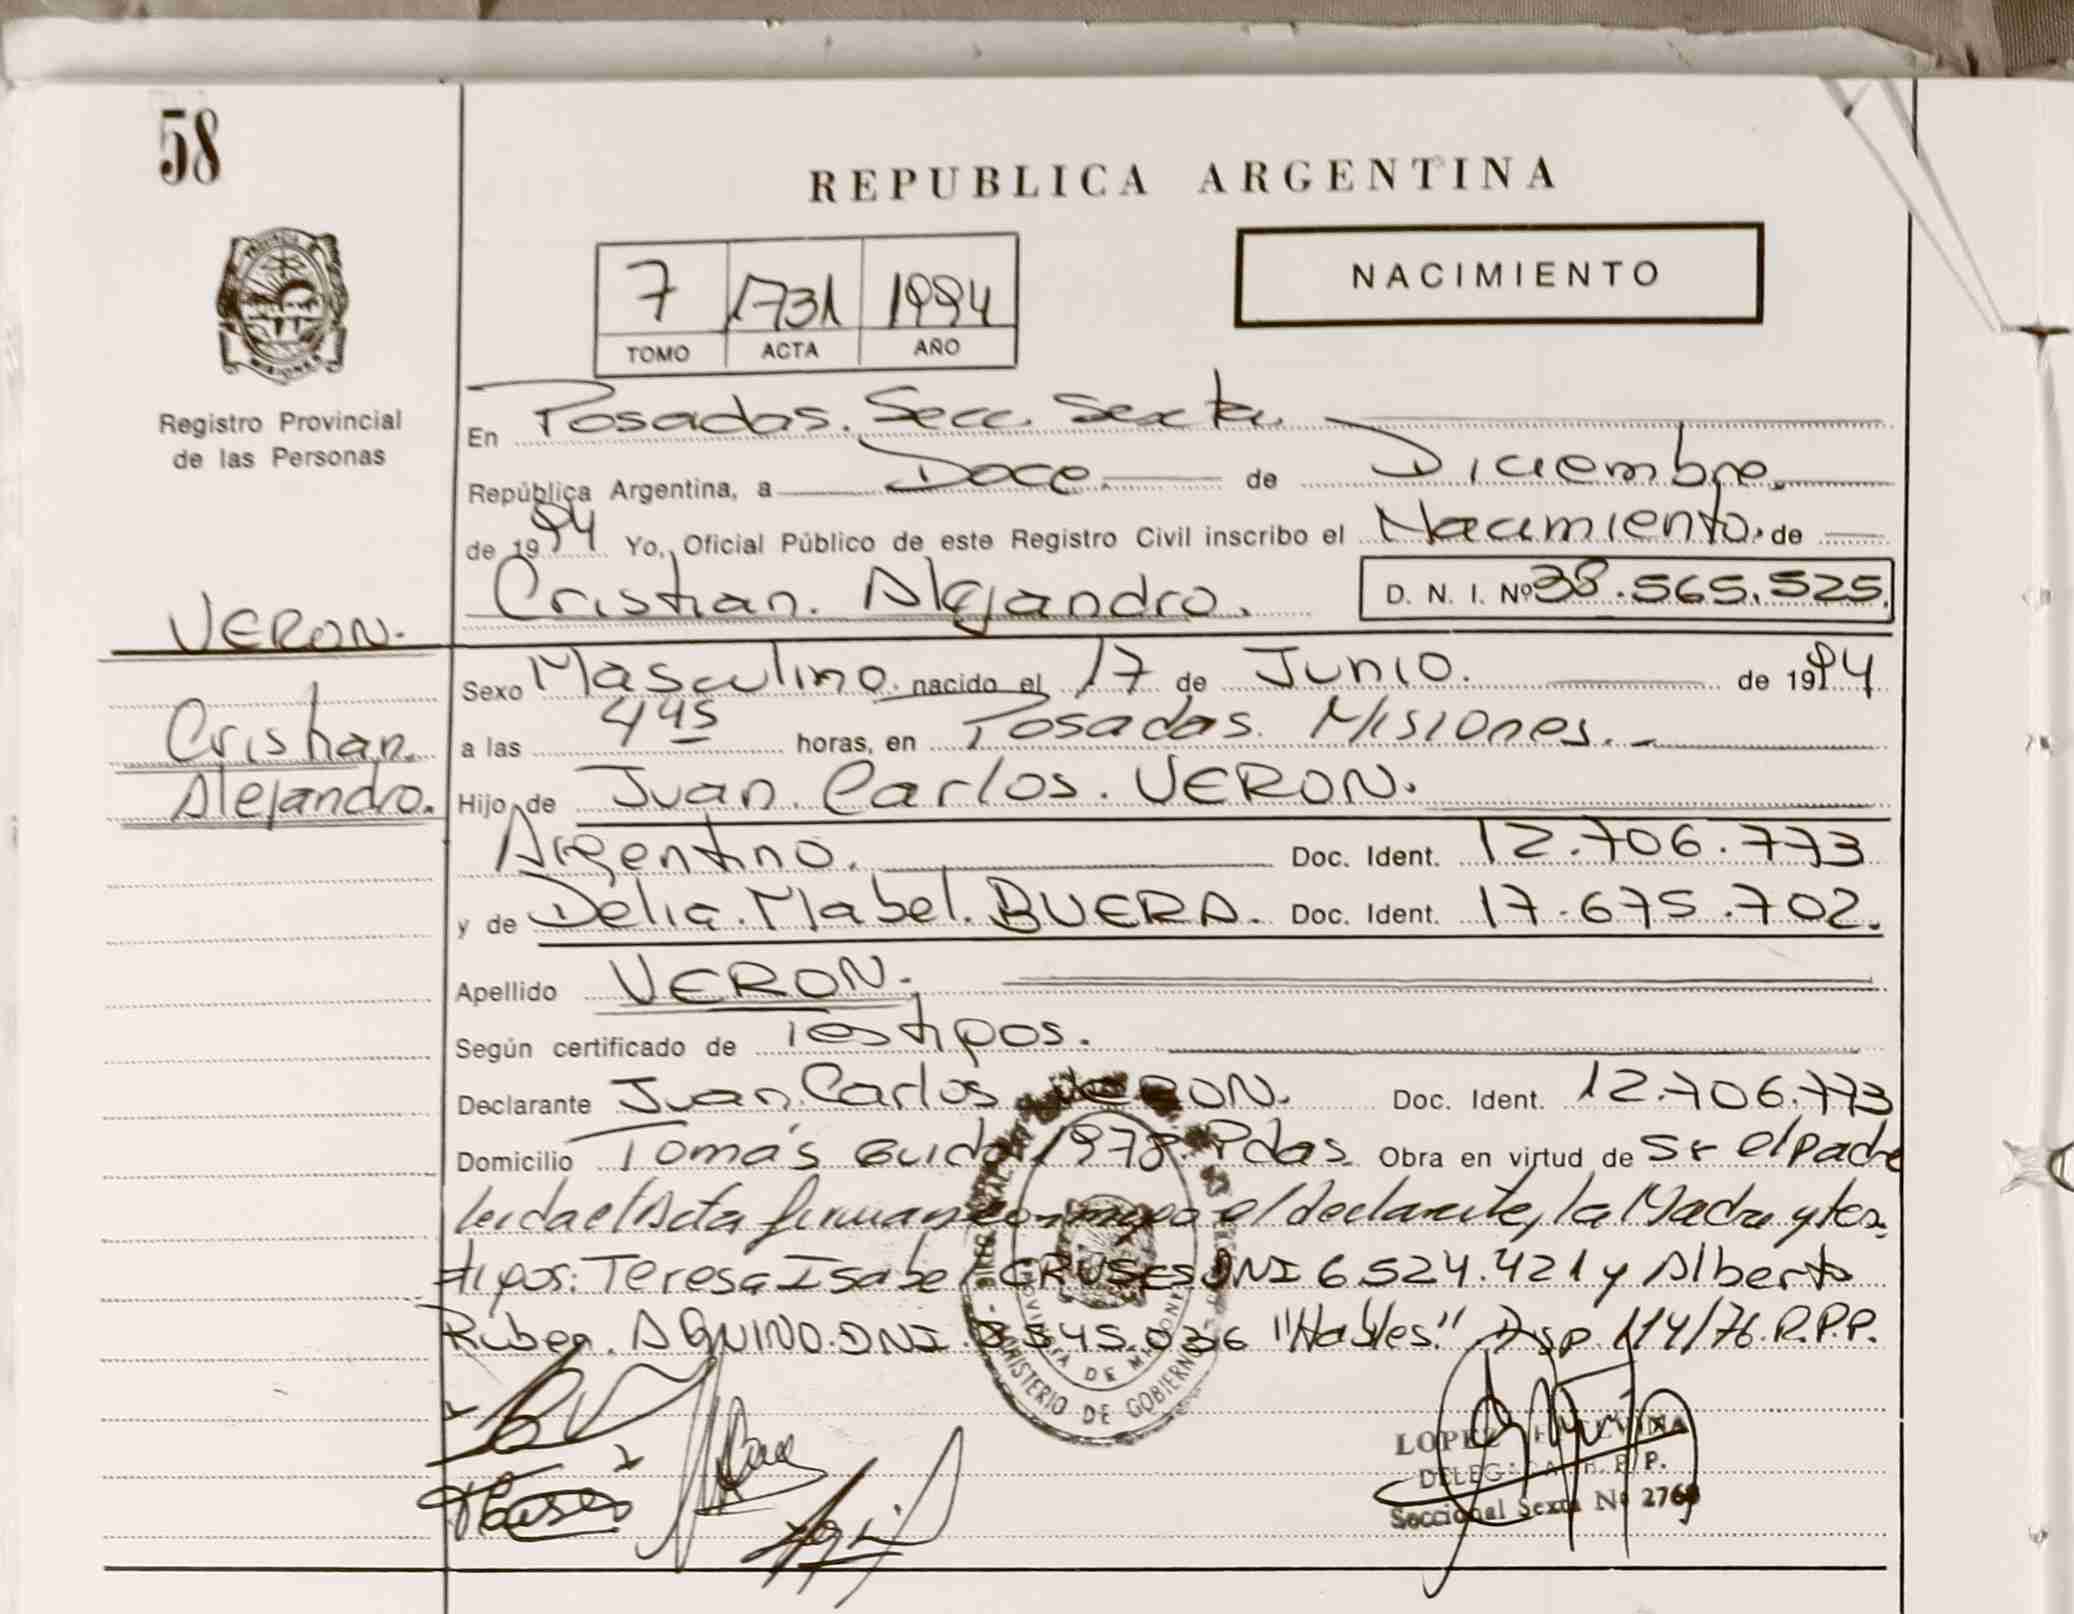 58
REPUBLICA ARGENTINA
NACIMIENTO
7 1731 1994
TOMO ACTA AÑO
Registro Provincial
de las Personas
En Posadas. Secc. Sexta
República Argentina, a Doce de Diciembre.
de 1994 Yo, Oficial Público de este Registro Civil inscribo el Nacimiento. de
Cristian. Alejandro. D. N. I. Nº 38.565.525.
VERON.
Cristian.
Alejandro.
Sexo Masculino. nacido el 17 de Junio. de 1994
a las 4 45 horas, en Posadas. Misiones.
Hijo de Juan. Carlos. VERON.
Argentino. Doc. Ident. 12.706.773
y de Delia. Mabel. BUERA. Doc. Ident. 17.675.702.
Apellido VERON.
Según certificado de Testigos.
Declarante Juan. Carlos VERON. Doc. Ident. 12.706.773
Domicilio Tomás Guido 1978. Pdas. Obra en virtud de Sr el padre
leida el Acta firman conmigo el declarante, la Madre y tes
tigos: Teresa Isabel CRUSES DNI 6.524.421 y Alberto
Ruben. AQUINO. DNI. 545.036 "Habiles" Disp. 114/76. R.P.P.
PROVINCIA DE MISIONES
MINISTERIO DE GOBIERNO
LOPEZ
Seccional Sexta Nº 2769